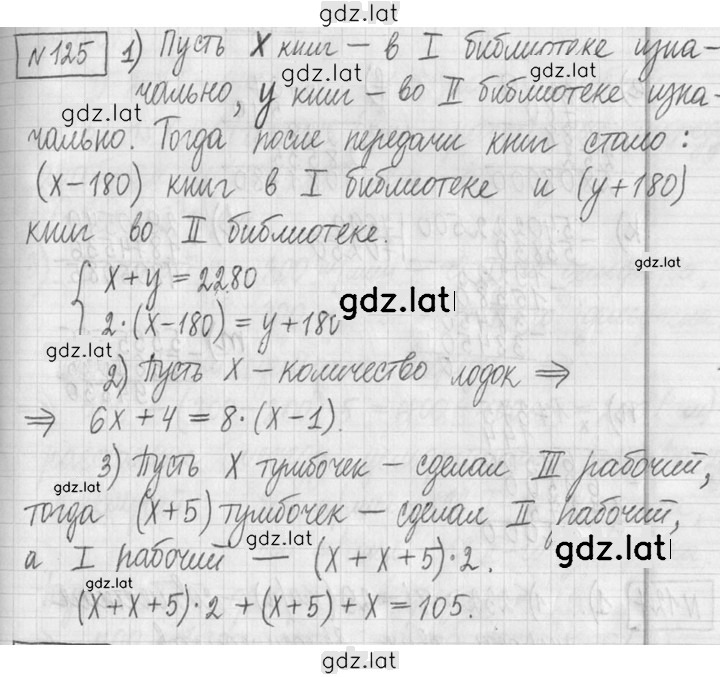 gdz.lat
№125 1) Пусть x книг – в I библиотеке изна-
gdz.lat
чально, y книг – во II библиотеке изна-
gdz.lat
чально. Тогда после передачи книг стало:
(x-180) книг в I библиотеке и (y+180)
книг во II библиотеке.
gdz.lat
{ x+y=2280
gdz.lat
2·(x-180)=y+180
gdz.lat
2) Пусть x – количество лодок ⇒
⇒ 6x+4=8·(x-1).
3) Пусть x тумбочек – сделал III рабочий,
gdz.lat
тогда (x+5) тумбочек – сделал II рабочий,
gdz.lat
gdz.lat
а I рабочий — (x+x+5)·2.
gdz.lat
(x+x+5)·2+(x+5)+x=105.
gdz.lat